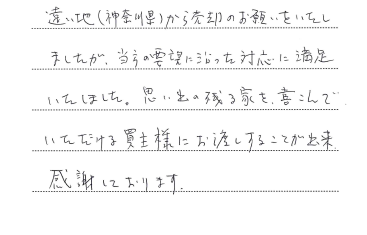 遠い地(神奈川県)から売却のお願いをいたし
ましたが、当方の要望に沿った対応に満足
いたしました。思い出の残る家を、喜こんで
いただける買主様にお渡しすることが出来
感謝しております.